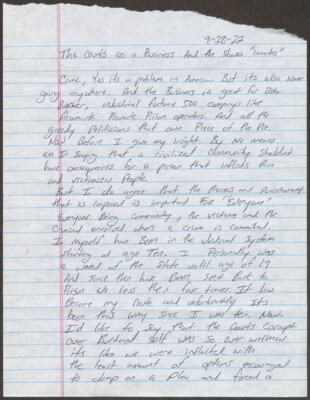 9-28-22
The Courts as a Business And the Slaves "Inmates"
Crime, Yes its a problem in American. But its also Never
going anywhere. And the Business is great for
industrial fortune 500 companys like
Aramark Private Prison operators. And all the
greedy Politicians that own Piece of the Pie.
Now Before I give my insight By No means
am I Saying that a civilized Community Shouldnt
have consequences for a person that inflicts Pain
and victimizes People.
But I do agree that the Process and Punishment
that is imposed is important For "Everyone"
Everyone Being community, the victims and the
Criminal envolved when a crime is commited.
I myself have Been in the Judicial System
starting at age Ten. I Personally was
a ward of the State until age of 19
And since then have Been Sent Back to
Prison No less then five times. It has
Become my Route and unfortunately Its
been this way since I was ten. Now
I'd like to say that the Courts
over Burdened self was so over
its like we were inflicted with
the least amount of options
to Jump on a Plea and forced a